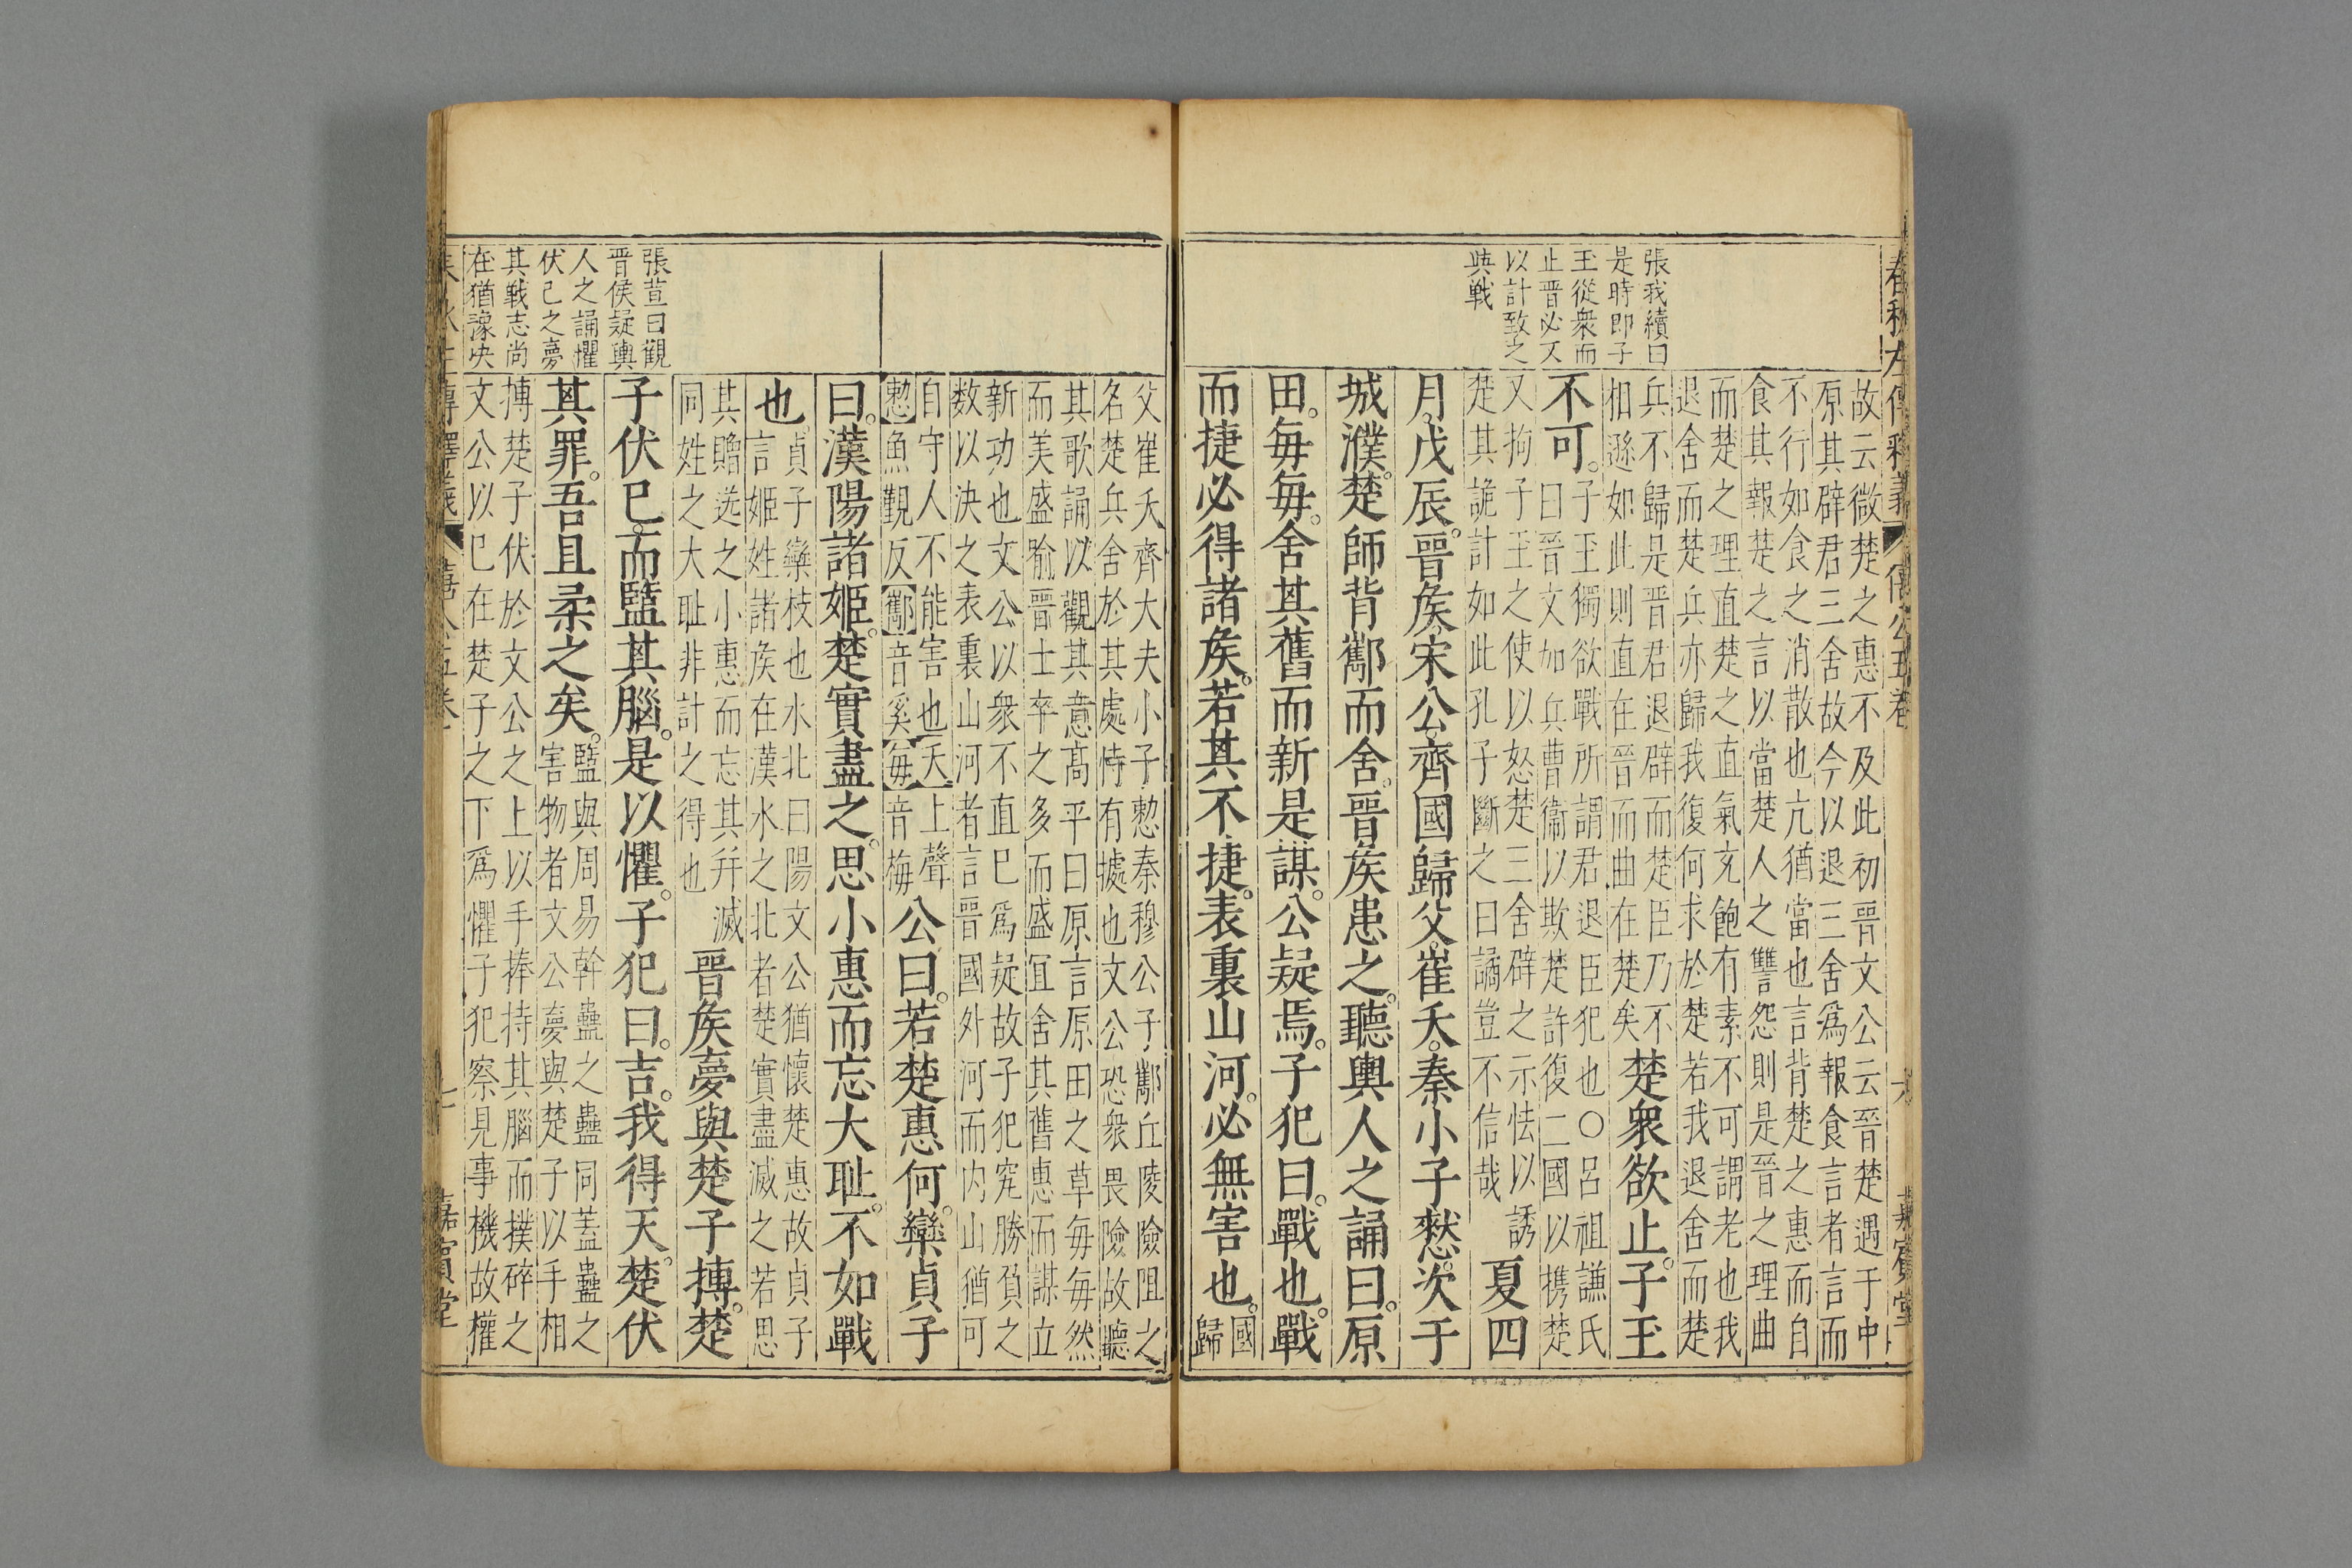 春秋左傳釋義 僖公五卷 六 嘉賓堂
張我續曰
是時即子
玉從衆而
止晉必又
以計致之
與戰
故云微楚之惠不及此初晉文公云晉楚遇于中
原其辟君三舍故今以退三舍爲報食言者言而
不行如食之消散也亢猶當也言背楚之惠而自
食其報楚之言以當楚人之讐怨則是晉之理曲
而楚之理直楚之直氣充飽有素不可謂老也我
退舍而楚兵亦歸我復何求於楚若我退舍而楚
兵不歸是晉君退辟而楚臣乃不
扣遜如此則直在晉而曲在楚矣
楚衆欲止。子玉
不可。
子玉獨欲戰所謂君退臣犯也○呂祖謙氏
曰晉文加兵曹衞以欺楚許復二國以携楚
又拘子玉之使以怒楚三舍辟之示怯以誘
楚其詭計如此孔子斷之曰譎豈不信哉
夏四
月。戊辰。晉矦。宋公。齊國歸父。崔夭。秦小子憖。次于
城濮。楚師背酅而舍。晉矦患之。聽輿人之誦曰。原
田。每每。舍其舊而新是謀。公疑焉。子犯曰。戰也。戰
而捷必得諸矦。若其不捷。表裏山河。必無害也。
國
歸
父崔夭齊大夫小子憖秦穆公子酅丘陵險阻之
名楚兵舍於其處恃有據也文公恐衆畏險故聽
其歌誦以觀其意髙平曰原言原田之草每每然
而美盛喻晉士卒之多而盛宜舍其舊惠而謀立
新功也文公以衆不直已爲疑故子犯究勝負之
数以決之表裏山河者言晉國外河而内山猶可
自守人不能害也【夭】上聲
【憖】魚覲反【酅】音奚【每】音梅
公曰。若楚惠何。欒貞子
曰。漢陽諸姬。楚實盡之。思小惠而忘大耻。不如戰
也。
貞子欒枝也水北曰陽文公猶懷楚惠故貞子
言姬姓諸矦在漢水之北者楚實盡滅之若思
其贈送之小惠而忘其幷滅
同姓之大耻非計之得也
晉矦夢與楚子搏。楚
子伏已。而盬其腦。是以懼。子犯曰。吉。我得天。楚伏
其罪。吾且柔之矣。
盬與周易幹蠱之蠱同蓋蠱之
害物者文公夢與楚子以手相
搏楚子伏於文公之上以手捧持其腦而撲碎之
文公以巳在楚子之下爲懼子犯察見事機故權
張萱曰觀
晉侯疑輿
人之誦懼
伏己之夢
其戰志尚
在猶豫央
嘉賓堂